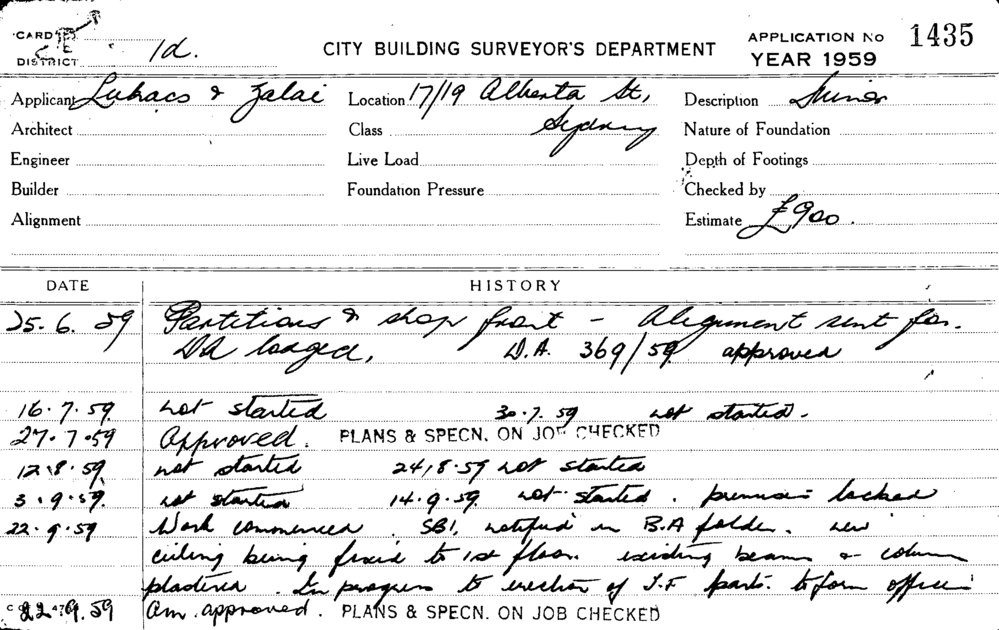 CARD
DISTRICT 1d. CITY BUILDING SURVEYOR'S DEPARTMENT APPLICATION No 1435
YEAR 1959
Applicant Lukacs & Zalai Location 17/19 Alberta St, Description Minor
Architect Class Sydney Nature of Foundation
Engineer Live Load Depth of Footings
Builder Foundation Pressure Checked by
Alignment Estimate £900.
DATE HISTORY
25.6.59 Partitions & shop front - Alignment sent for.
DA lodged, D.A. 369/59 approved
16.7.59 not started 30.7.59 not started.
27.7.59 Approved. PLANS & SPECN. ON JOB CHECKED
12.8.59 not started 24.8.59 not started
3.9.59. not started 14.9.59. not started. premises locked
22.9.59 Work commenced. SBI, notified in B.A folder. new
ceiling being fixed to 1st floor. existing beams & column
plastered. In progress to erection of I.F parts. to form offices
22.9.59 Am. approved. PLANS & SPECN. ON JOB CHECKED